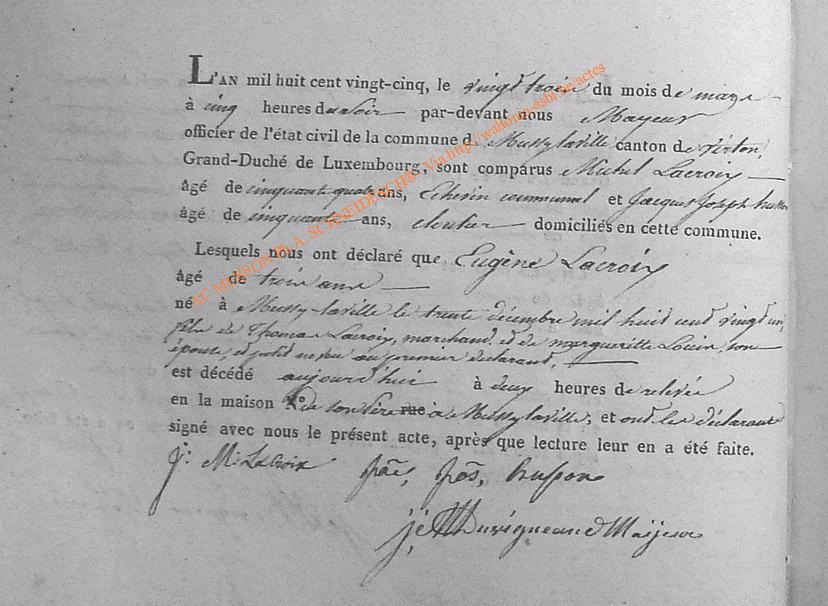 L'AN mil huit cent vingt-cinq, le vingt trois du mois de mars
à cinq heures du soir par-devant nous Mayeur
officier de l'état civil de la commune de Mussy la ville canton de virton,
Grand-Duché de Luxembourg, sont comparus Michel Lacroix
âgé de cinquante quatre ans, Echevin communal et Jacques Joseph
âgé de cinquante ans, cloutier domiciliés en cette commune.
Lesquels nous ont déclaré que Eugène Lacroix
âgé de trois ans
né à Mussy-la-ville le trente décembre mil huit cent vingt un
fils de Thomas Lacroix, marchand, et de margueritte Louis, son
épouse, et petit neveu au premier déclarant,
est décédé aujourd'hui à deux heures de relevée
en la maison N.º de son père rue à Mussy la ville, et ont les déclarants
signé avec nous le présent acte, après que lecture leur en a été faite.
j: M: LaCroix
Maijeur
AC MUSSON via A. SCHNEIDESCH © Via http://wallonia-asbl.be/actes